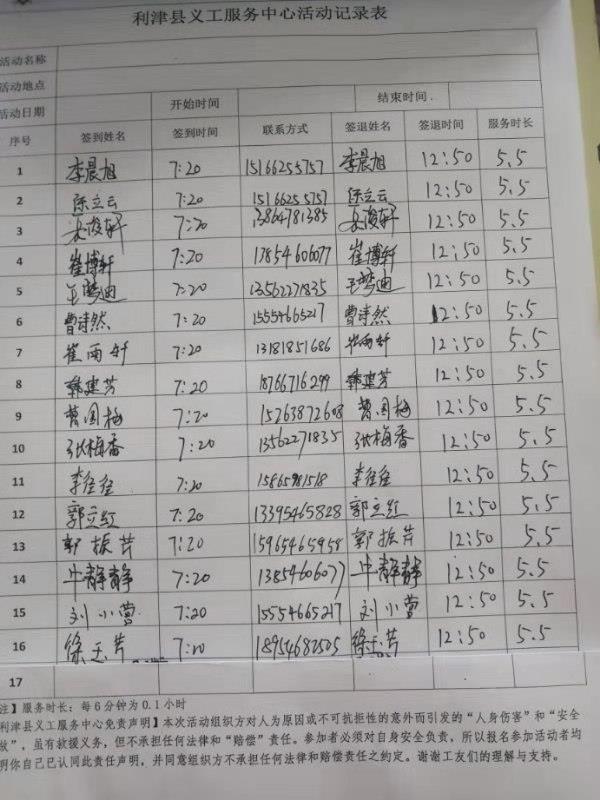 利津县义工服务中心活动记录表
活动名称
活动地点
活动日期 开始时间 结束时间.
序号 签到姓名 签到时间 联系方式 签退姓名 签退时间 服务时长
1 李晨旭 7:20 15166255757 李晨旭 12:50 5.5
2 陈立云 7:20 15166255757 陈立云 12:50 5.5
3 7:20 13864781385 12:50 5.5
4 崔博轩 7:20 17854606077 崔博轩 12:50 5.5
5 7:20 13562271835 12:50 5.5
6 曹诗然 7:20 15554665217 曹诗然 12:50 5.5
7 崔雨轩 7:20 13181851686 崔雨轩 12:50 5.5
8 韩建芳 7:20 18766716299 韩建芳 12:50 5.5
9 曹国梅 7:20 15263872608 曹国梅 12:50 5.5
10 张梅香 7:20 13562271835 张梅香 12:50 5.5
11 7:20 12:50 5.5
12 郭立红 7:20 13395465828 郭立红 12:50 5.5
13 郭振芹 7:20 15965465958 郭振芹 12:50 5.5
14 牛静静 7:20 13854606077 牛静静 12:50 5.5
15 刘小营 7:20 15554665217 刘小营 12:50 5.5
16 徐玉芹 7:20 18954682525 徐玉芹 12:50 5.5
17
注】服务时长：每6分钟为0.1小时
利津县义工服务中心免责声明】本次活动组织方对人为原因或不可抗拒性的意外而引发的“人身伤害”和“安全
故”，虽有救援义务，但不承担任何法律和“赔偿”责任。参加者必须对自身安全负责，所以报名参加活动者均
明你自己已认同此责任声明，并同意组织方不承担任何法律和赔偿责任之约定。谢谢工友们的理解与支持。